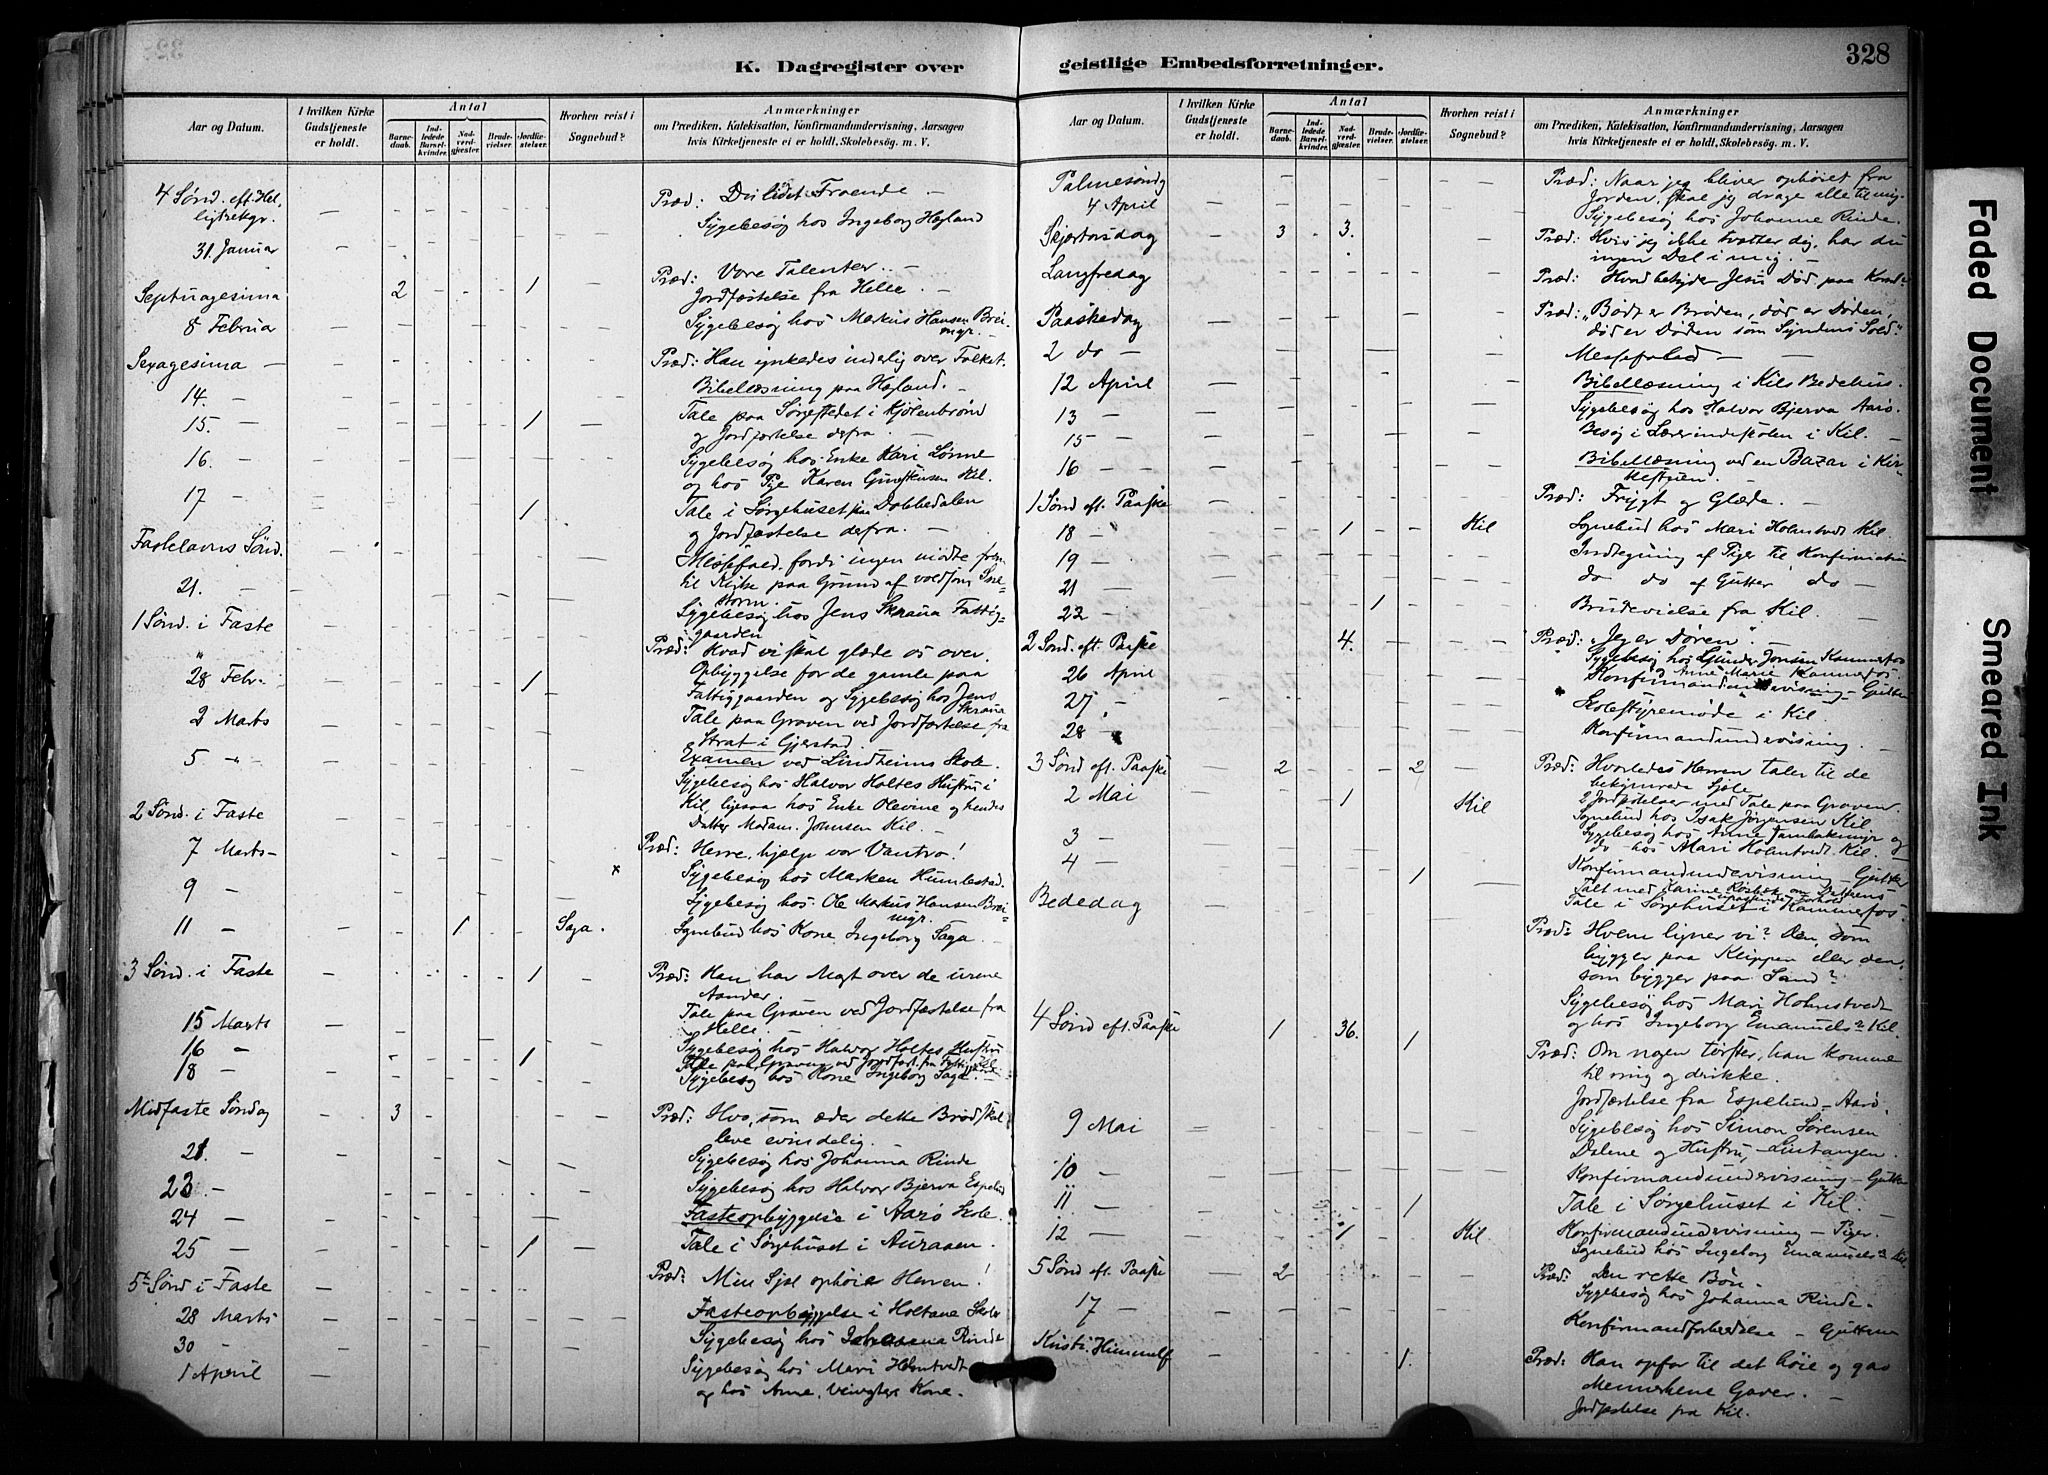 328
K. Dagregister over
geistlige Embedsforretninger.
Aar og Datum.
I hvilken Kirke Gudstjeneste er holdt.
Antal
Barnedaab.
Indledede Barselkvinder.
Nadverdgjæster.
Brudevielser.
Jordfæstelser.
Hvorhen reist i Sognebud?
Anmærkninger
om Prædiken, Katekisation, Konfirmandundervisning, Aarsagen
hvis Kirketjeneste ei er holdt, Skolebesög. m. V.
4 Sønd. eft. Hel.
ligtrekgr.
Præd: Du lidet Troende —
Sygebesøg hos Ingeborg Høgland
31. Januar
Præd: Vore Talenter. —
Septuagesima 2 1 Jordfæstelse fra Helle. —
8 Februar Sygebesøg hos Markus Hansen Brei-
mgr.
Sexagesima — Præd: Han ynkedes inderlig over Folket.
14. — Bibellæsning paa Høgland. —
15. — 1 Tale paa Sørgestedet i Kjølenbrønd
og Jordfæstelse defra. —
16. — Sygebesøg hos Enke Kari Lønne
og hos Pge Karen Gundersen Kil.
17 — 1 Tale i Sørgehuset paa Dobbedalen
og Jordfæstelse defra. —
Fastelavns Sønd. Messefald, fordi ingen mødte frem
til Kirke paa Grund af voldsom Sne
storm.
21. —
1 Sønd. i Faste Sygebesøg hos Jens Skraua Fattig-
gaarden
Præd: Hvad vi skal glæde os over.
28 Febr. 1 Opbyggelse for de gamle paa
Fattiggaarden og Sygebesøg hos Jens
Skraua
2 Marts Tale paa Graven ved Jordfæstelse fra
Strat i Gjerstad.
5 — Examen ved Lindheims Skole.
Sygebesøg hos Halvor Holtes Hustru i
Kil, ligesaa hos Enke Olevine og hendes
2 Sønd. i Faste Datter Madam Johnsen Kil. —
7 Marts — Præd: Herre, hjælp vor Vantro!
Sygebesøg hos Marken Humlestad.
9 — Sygebesøg hos Ole Markus Hansen Brei-
mgr.
11 — 1 Saga. Sognebud hos Kone Ingeborg Saga —
3 Sønd. i Faste 1 Præd: Han har Magt over de urene
Aander
15 Marts Tale paa Graven ved Jordfæstelse fra
Helle.
16 — 1 Sygebesøg hos Halvor Holtes Hustru
18 — Tale paa Graven ved Jordfæst. fra
Sygebesøg hos Kone Ingeborg Saga
Midfaste Søndag 3 Præd: Hvo, som æder dette Brød skal
leve evindelig.
21. — Sygebesøg hos Johanna Rinde
23 — Sygebesøg hos Halvor Bjerva Espelund
24 — Fasteopbyggelse i Aarø Skole.
25 — 1 Tale i Sørgehuset i Auraaen.
5te Sønd i Faste Præd: Min Sjæl ophøie Herren!
28 Marts Fasteopbyggelse i Holtane Skole
30 — Sygebesøg hos Johanna Rinde
1 April Sygebesøg hos Mari Holmtvedt
og hos Anne, Veivogters Kone. —
Aar og Datum.
I hvilken Kirke Gudstjeneste er holdt.
Antal
Barnedaab.
Indledede Barselkvinder.
Nadverdgjæster.
Brudevielser.
Jordfæstelser.
Hvorhen reist i Sognebud?
Anmærkninger
om Prædiken, Katekisation, Konfirmandundervisning, Aarsagen
hvis Kirketjeneste ei er holdt, Skolebesög. m. V.
Palmesøndg Præd: Naar jeg bliver ophøiet fra
4 April Jorden, skal jeg drage alle til mig.
Sygebesøg hos Johanne Rinde.
Skjærtorsdag 3 3. Præd: Hvis jeg ikke tvætter dig, har du
ingen Del i mig —
Langfredag Præd: Hvad betyder Jesu Død paa Korset?
Paaskedag Præd: "Brødt er Brøden, død er Døden,
død er Døden som Syndens Sold."
2 do — Messefald —
12 April Bibellæsning i Kils Bedehus.
13 — Sygebesøg hos Halvor Bjerva Aarø.
15 — Besøg i Lærerindeskolen i Kil. —
16 — Bibellæsning ved en Bazar i Kir-
kestuen. —
1 Sønd eft. Paaske Præd: Frygt og Glæde. —
18 — 1 Kil Sognebud hos Mari Holmtvedt Kil.
19 — Indtegning af Piger til Konfirmation
21 — do do af Gutter do —
22 — 1 Brudevielse fra Kil. —
2 Sønd. eft. Paaske 4. Præd: "Jeg er Døren" —
26 April Sygebesøg hos Gunder Jensen Kammerfos
og Anne Marie Kammerfos.
Konfirmandundervisning — Gutter
27 — Skolestyremøde i Kil.
28 " Konfirmandundervisning. —
3 Sønd eft. Paaske 2 2 Præd: Hvorledes Herren taler til de
bekymrede Sjæle
2 Mai 1 Kil 2 Jordfæstelser med Tale paa Graven.
Sognebud hos Isak Jørgensen Kil
3 — Sygebesøg hos Anne og
do hos Mari Holmtvedt Kil. —
4 — Konfirmandundervisning — Gutter
1 Talt med Karine Rosbæk om Datterens Forhold
Bededag Tale i Sørgehuset i Kammerfos.
Præd: Hvem ligner vi? Den, som
bygger paa Klippen eller den,
som bygger paa Sand?
Sygebesøg hos Mari Holmtvedt
4 Sønd eft. Paaske 1 36. 1 og hos Ingeborg Emanuels Kil.
Præd: Om nogen tørster, han komme
til mig og drikke.
Jordfæstelse fra Espelund — Aarø.
9 Mai Sygebesøg hos Simon Sørensen
Dalene og Hustru — Lintangen.
10 — Konfirmandundervisning — Gutter
11 — 1 Tale i Sørgehuset i Kil. —
12 — 1 Kil Konfirmandundervisning — Piger.
Sognebud hos Ingeborg Emanuels Kil.
5 Sønd eft. Paaske 2 Præd: Den rette Bøn. —
17 — Sygebesøg hos Johanna Rinde. —
Konfirmandforberedelse — Gutterne
Kristi Himmelf 1. Præd: Han opfor til det høie og gav
Menneskene Gaver. —
Jordfæstelse fra Kil.
Faded Document
Smeared Ink